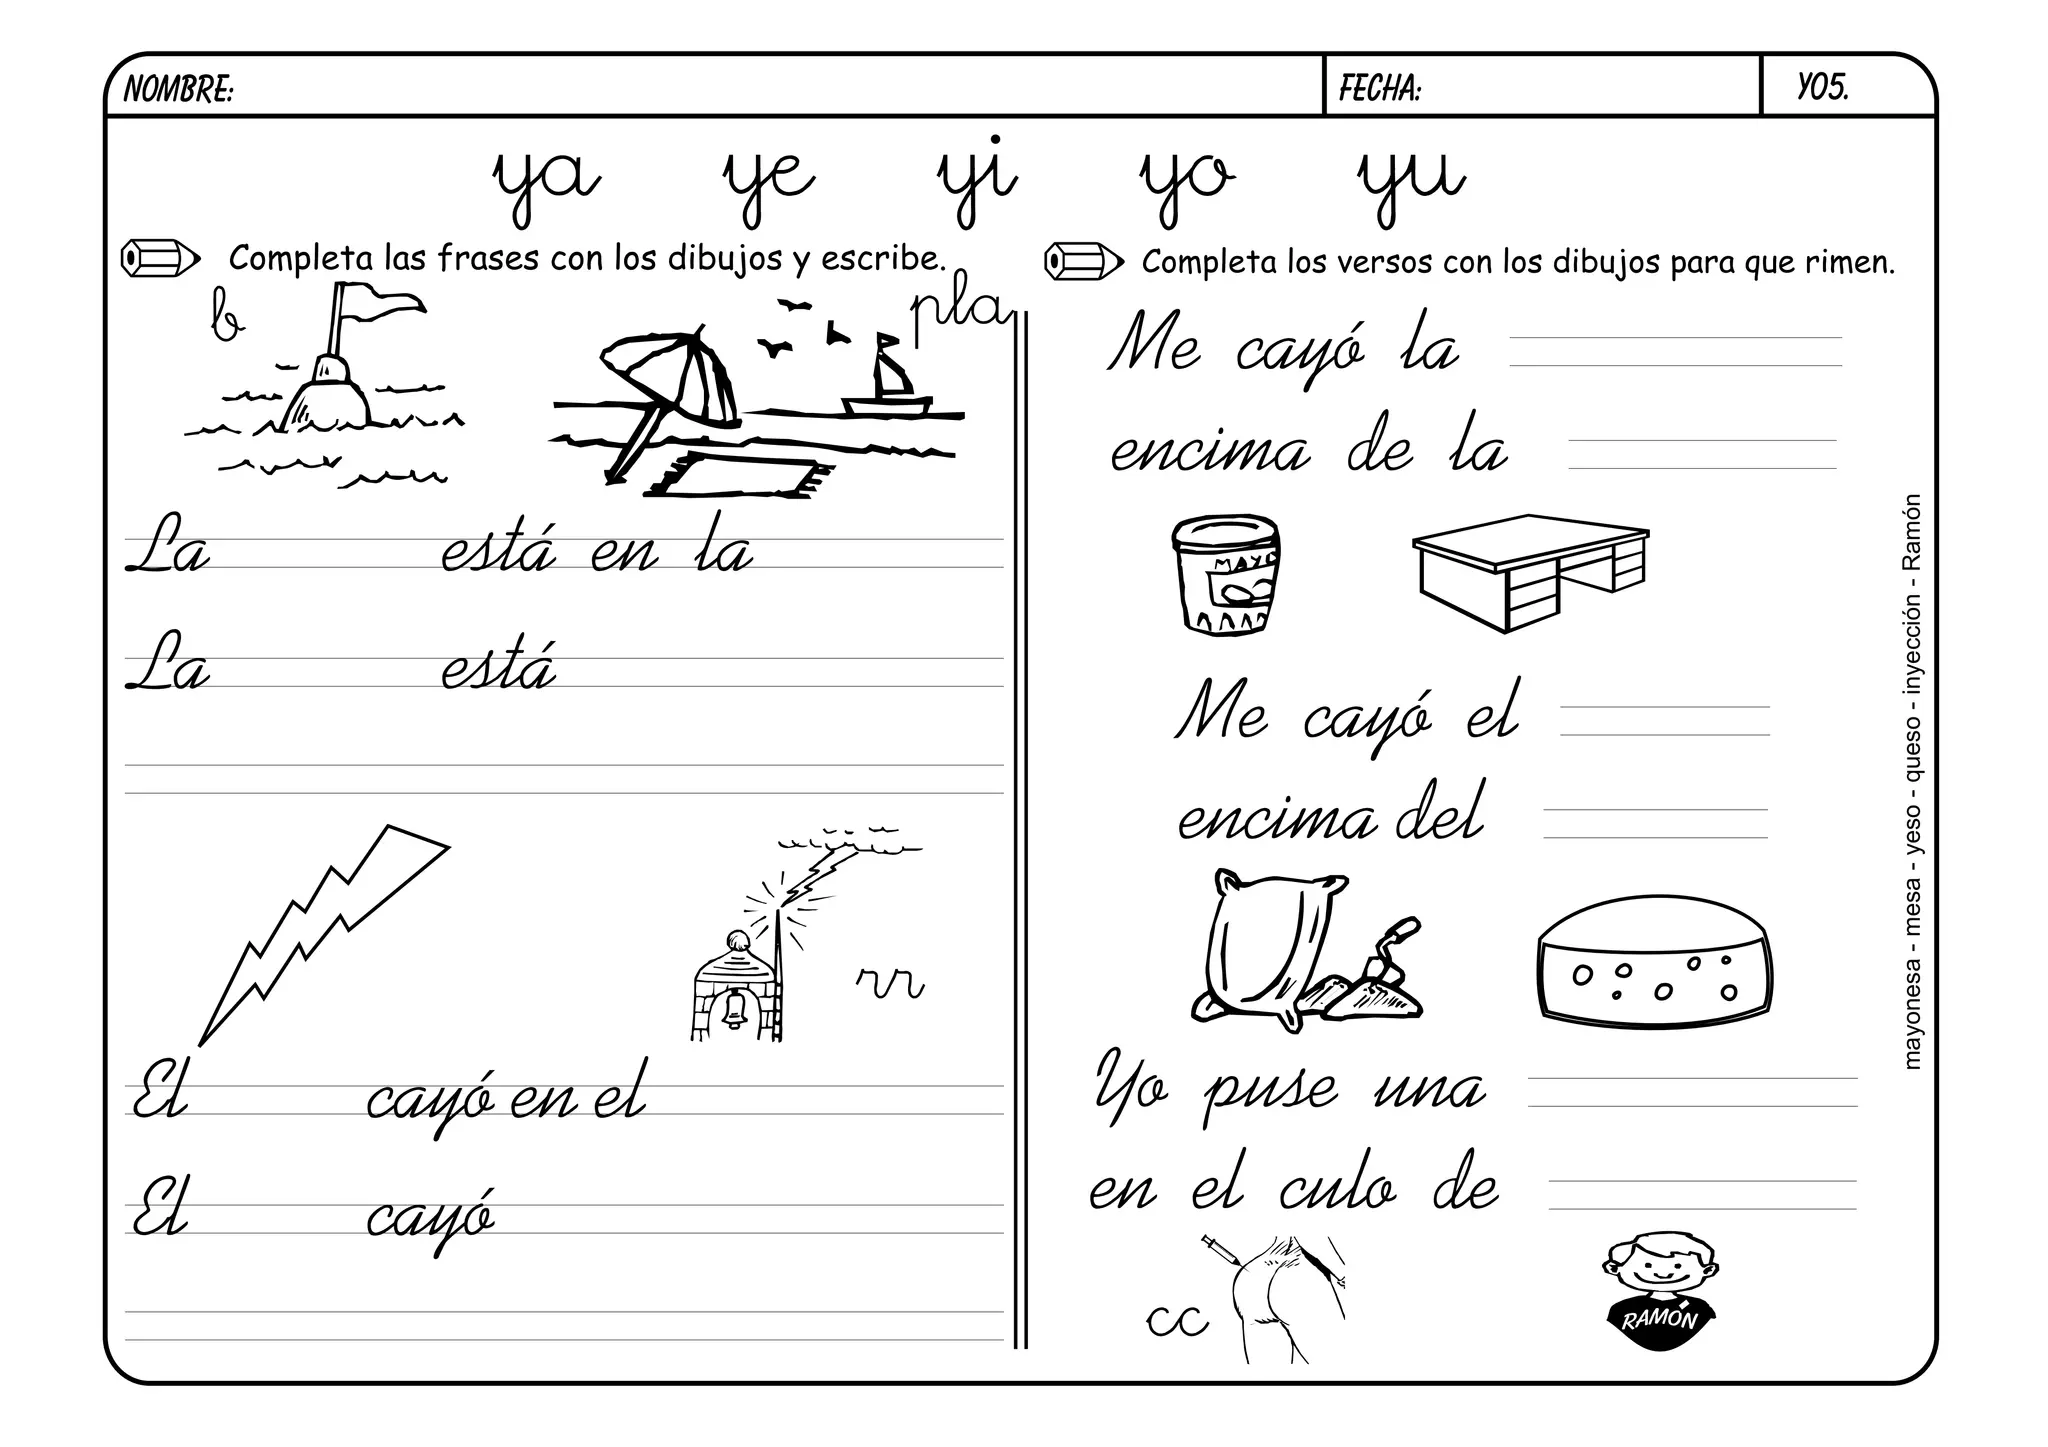 NOMBRE:
FECHA:
YO5.
ya ye yi yo yu
Completa las frases con los dibujos y escribe.
b
pla
La está en la
La está
rr
El cayó en el
El cayó
Completa los versos con los dibujos para que rimen.
Me cayó la
encima de la
MAYO
Me cayó el
encima del
Yo puse una
en el culo de
cc
RAMÓN
mayonesa - mesa - yeso - queso - inyección - Ramón